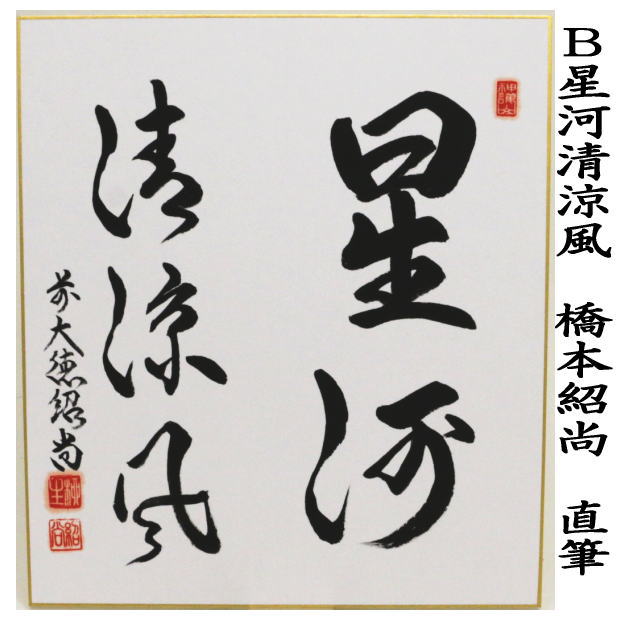 B星河清涼風　橋本紹尚　直筆
星河
清涼風
前大徳紹尚
紹尚